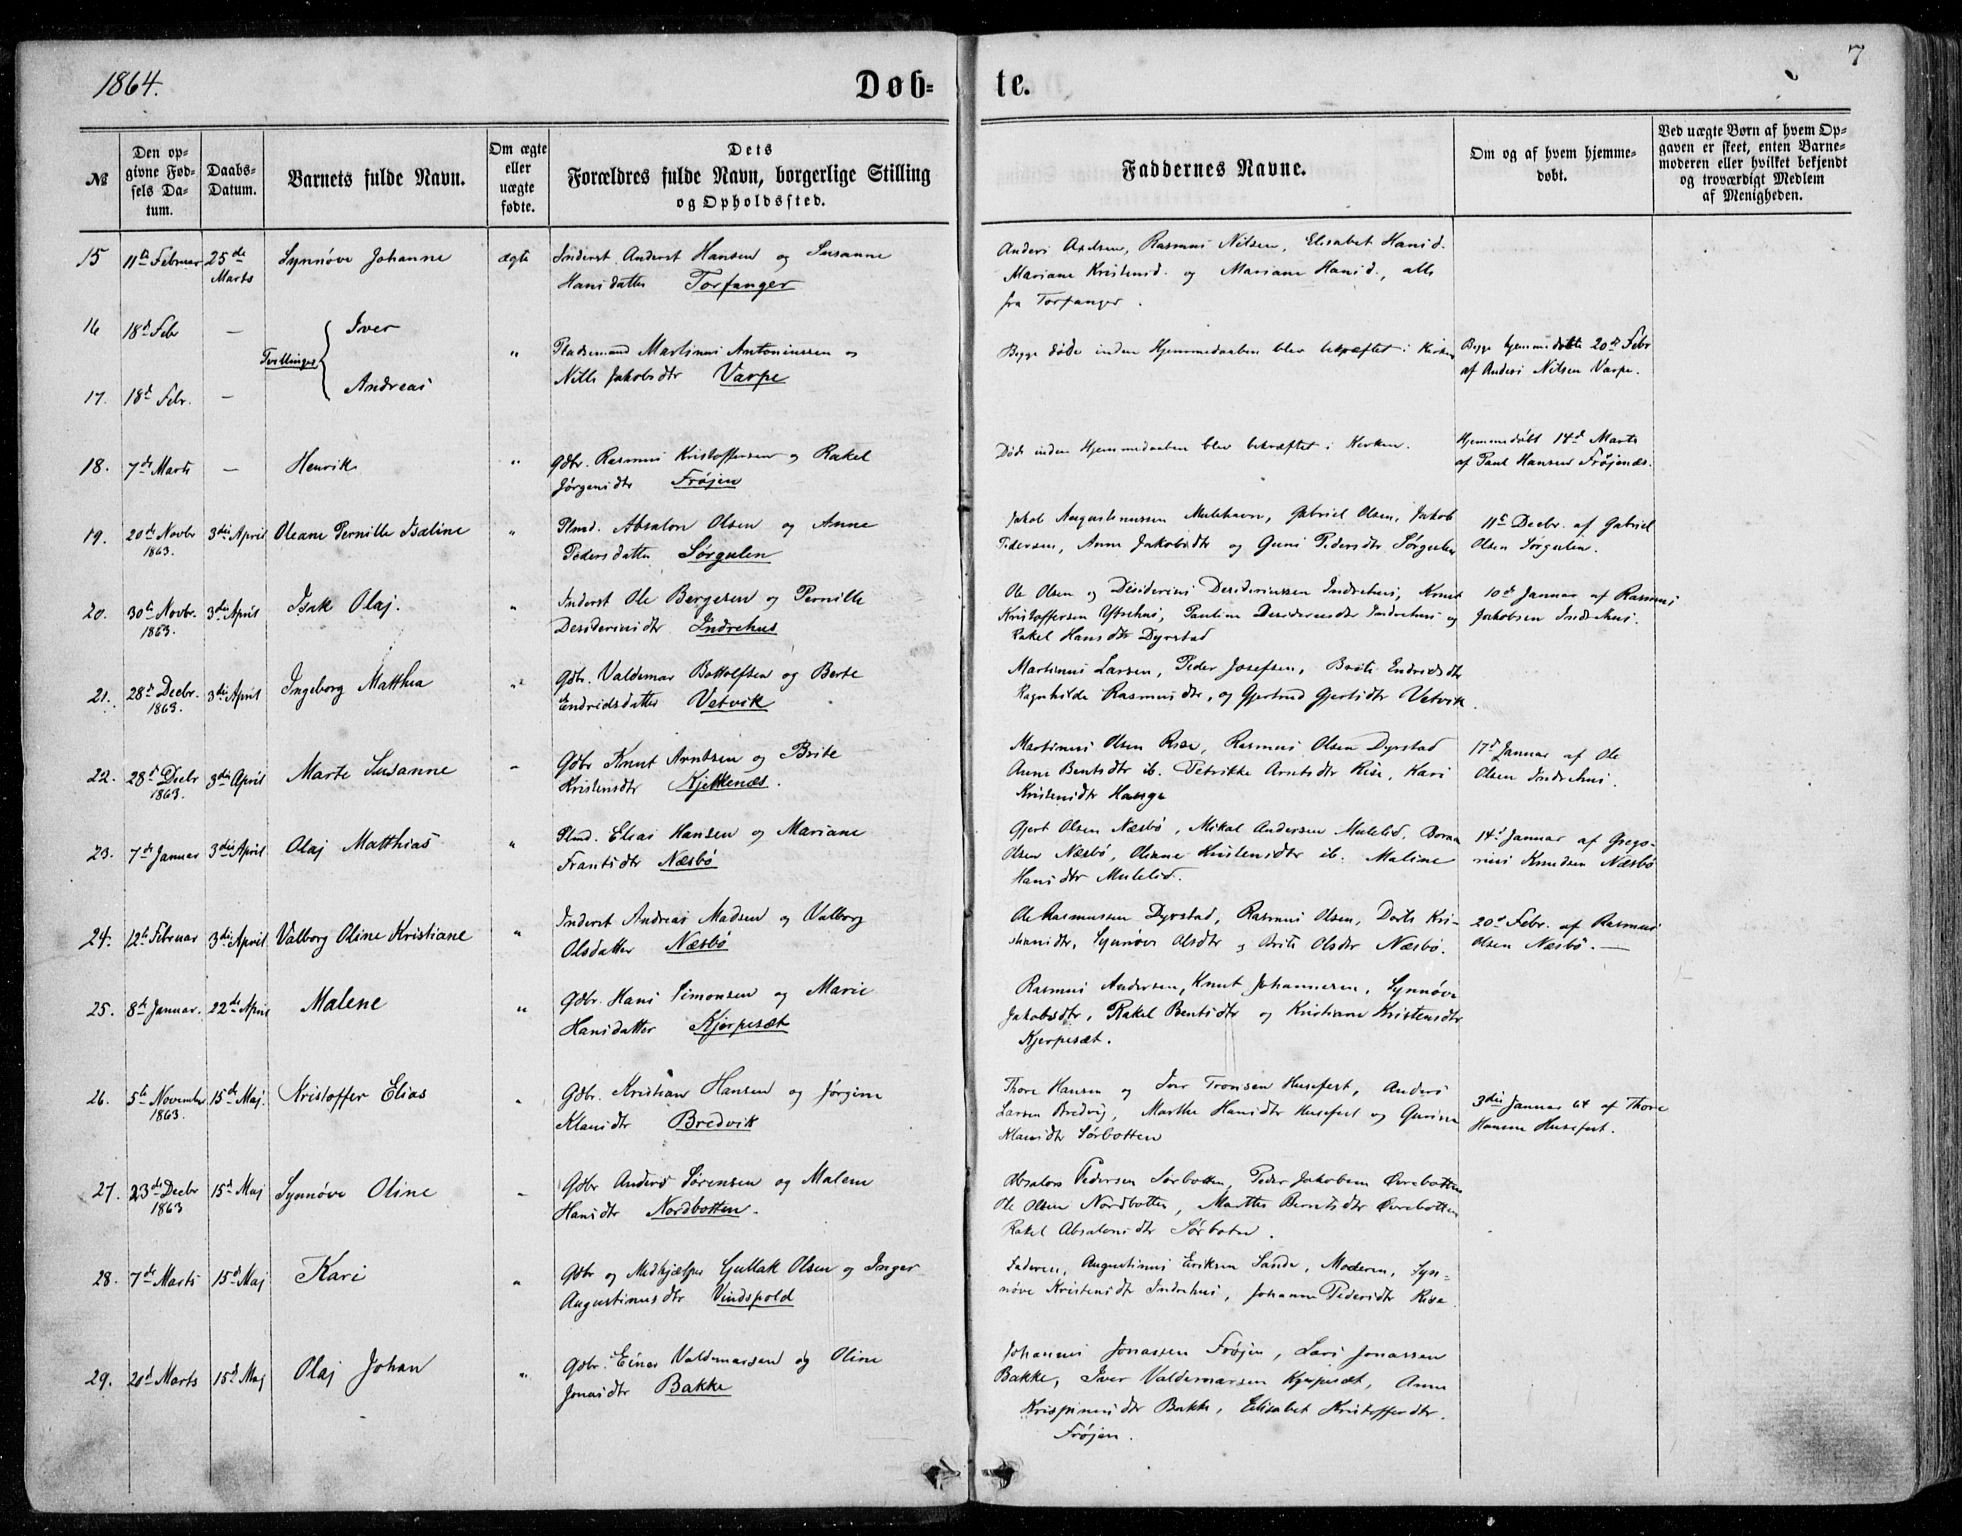 1864.
Døb=
te.
7
№
Den op=
givne Fød=
sels Da=
tum.
Daabs=
Datum.
Barnets fulde Navn.
Om ægte
eller
uægte
fødte.
Dets
Forældres fulde Navn, borgerlige Stilling
og Opholdssted.
Faddernes Navne.
Om og af hvem hjemme=
døbt.
Ved uægte Børn af hvem Op=
gaven er skeet, enten Barne=
moderen eller hvilket bekjendt
og troværdigt Medlem
af Menigheden.
15 11te Februar 25de Marts Synnøve Johanne ægte Inderst Anderst Hansen og Susanne
Hansdatter Torfanger
Anders Axelsen, Rasmus Nilsen, Elisabet Hansd.
Mariane Kristensd. og Mariane Hansd., alle
fra Torfanger.
16 18d Feb — Iver
Tvillinger
17. 18d Febr. — Andreas
" Pladsemand Martinus Antoniussen og
Nille Jakobsdtr Varpe
Begge døde inden Hjemmedaaben blev bekræftet i Kirken
Begge hjemmedøbte 20de Febr
af Anders Nilsen Varpe.
18. 7de Marts — Henrik " Gdbr. Rasmus Kristoffersen og Rakel
Jørgensdtr Frøjen
Døde inden Hjemmedaaben blev bekræftet i Kirken.
Hjemmedøbt 14d Marts
af Paul Hansen Frøjenæs.
19. 20de Novbr 1863. 3die April Oleane Pernille Isaline " Plmd. Absalon Olsen og Anne
Pedersdatter Sørgulen
Jakob Augustinussen Mulehavn, Gabriel Olsen, Jakob
Pedersen, Anne Jakobsdtr og Guni Pedersdtr Sørgulen
11te Decbr. af Gabriel
Olsen Sørgulen.
20. 30te Novbr. 1863. 3die April Isak Olaj. " Inderst Ole Bergesen og Pernille
Desideriusdtr Indrehus
Ole Olsen og Desiderius Desideriussen Indrehus, Knut
Kristoffersen Ytrehus, Pauline Desideriusdtr Indrehus og
Rakel Hansdtr Dyrstad
10de Januar af Rasmus
Jakobsen Indrehus.
21. 28de Decbr. 1863. 3die April Ingeborg Matthea " Gdbr. Valdemar Bottolfsen og Berte
Endridsdatter Vetvik
Martinus Larsen, Peder Josefsen, Brite Endridsdtr
Ragnhilde Rasmusdtr, og Gjertrud Gjertsdtr Vetvik.
22. 28de Decbr 1863. 3die April Marte Susanne " Gdbr Knut Arntsen og Brite
Kristensdtr Kjekkenæs.
Martinus Olsen Rise, Rasmus Olsen Dyrstad
Anne Bentsdtr ib. Petrikke Arntsdtr Rise, Kari
Kristensdtr Hauge
17d Januar af Ole
Olsen Indrehus.
23. 7de Januar 3die April Olaj Matthias " Plmd. Elias Hansen og Mariane
Frantsdtr Næsbø
Gjert Olsen Næsbø, Mikal Andersen Mulelid,
Olsen Næsbø, Oliane Kristensdtr ib. Maline
Hansdtr Mulelid.
14d Januar af Grego-
rius Knudsen Næsbø
24. 12te Februar 3die April Valborg Oline Kristiane " Inderst Andreas Madsen og Valborg
Olsdatter Næsbø
Ole Rasmussen Dyrstad, Rasmus Olsen, Dorte Kri-
stensdtr, Synnøve Olsdtr og Brite Olsdtr Næsbø.
20d Febr. af Rasmus
Olsen Næsbø. —
25. 8de Januar. 22de April Malene " Gdbr. Hans Simonsen og Marie
Hansdatter Kjerpesæt
Rasmus Andersen, Knut Johannesen, Synnøve
Jakobsdtr, Rakel Bentsdtr og Kristiane Kristensdtr
Kjerpesæt.
26. 5te November 1863. 15de Maj. Kristoffer Elias " Gdbr. Kristian Hansen og Jørgine
Klausdtr Bredvik
Thore Hansen og Iver Tronsen Husefest, Anders
Larsen Bredvig, Marthe Hansdtr Husefest og Gurine
Klausdtr Sørbotten
3die Januar 64 af Thore
Hansen Husefest.
27. 23de Decbr 1863 15d Maj Synnøve Oline " Gdbr Anders Sørensen og Malene
Hansdtr Nordbotten.
Absalon Pedersen Sørbotten, Peder Jakobsen Øvrebotten
Ole Olsen Nordbotten, Marthe Berntsdtr Øvrebotten
Rakel Absalonsdtr Sørbotn.
28. 7de Marts 15d Maj Kari " Gdbr og Medhjælper Gullak Olsen og Inger
Augustinusdtr Vindspold
Faderen, Augustinus Eriksen Sande, Moderen, Syn-
nøve Kristensdtr Indrehus, Johanne Pedersdtr Rise
29. 20d Marts 15d Maj Olaj Johan " Gdbr. Einer Valdemarsen og Oline
Jonasdtr Bakke
Johannes Jonassen Frøjen, Lars Jonassen
Bakke, Iver Valdemarsen Kjerpesæt, Anne
Krispinusdtr Bakke, Elisabet Kristoffersdtr.
Frøjen.